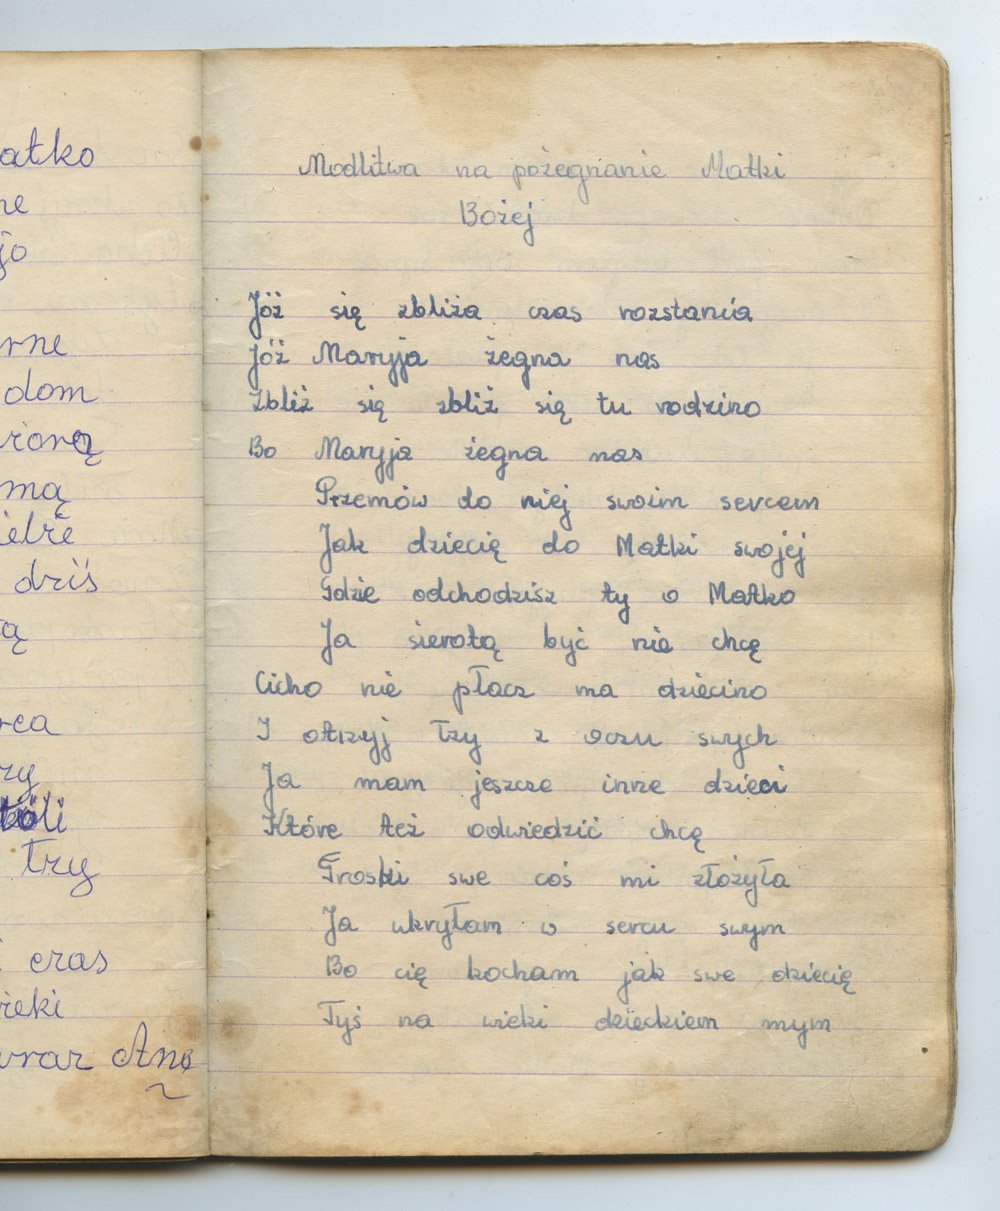 atko
ne
jo
rne
dom
rorą
mą
ielrē
dziś
tą
rca
zy
tóli
łzy
i czas
wieki
wraz Ane
Modlitwa na pożegnanie Matki
Bożej
Jóż się zbliża czas rozstania
Jóż Maryja żegna nas
Zbliż się zbliż się tu rodzino
Bo Maryja żegna nas
Przemów do niej swoim sercem
Jak dziecię do Matki swojej
Gdzie odchodzisz ty o Matko
Ja sierotą być nie chcę
Cicho nie płacz ma dziecino
I otrzyj łzy z oczu swych
Ja mam jeszcze inne dzieci
Które też odwiedzić chcę
Troski swe coś mi złożyła
Ja ukryłam w sercu swym
Bo cię kocham jak swe dziecię
Tyś na wieki dzieckiem mym